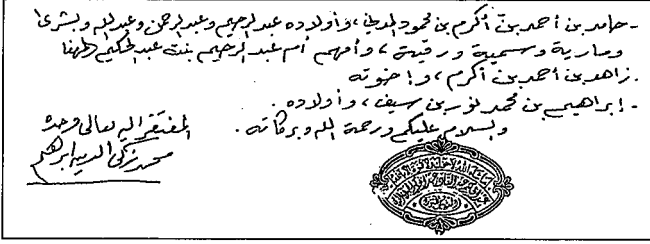 - حامد بن أحمد بن أكرم بن محمود المدني، وأولاده عبد الرحيم وعبد الرحمن وعبد الله وبشرى
ومارية وسمية ورقية، وأمهم أم عبد الرحيم بنت عبد الحكيم
. زاهد بن أحمد بن أكرم، وإخوته
- إبراهيم بن محمد نور بن سيف، وأولاده .
والسلام عليكم ورحمة الله وبركاته .
المفتقر إليه تعالى وحده
محمد زكي الدين إبراهيم